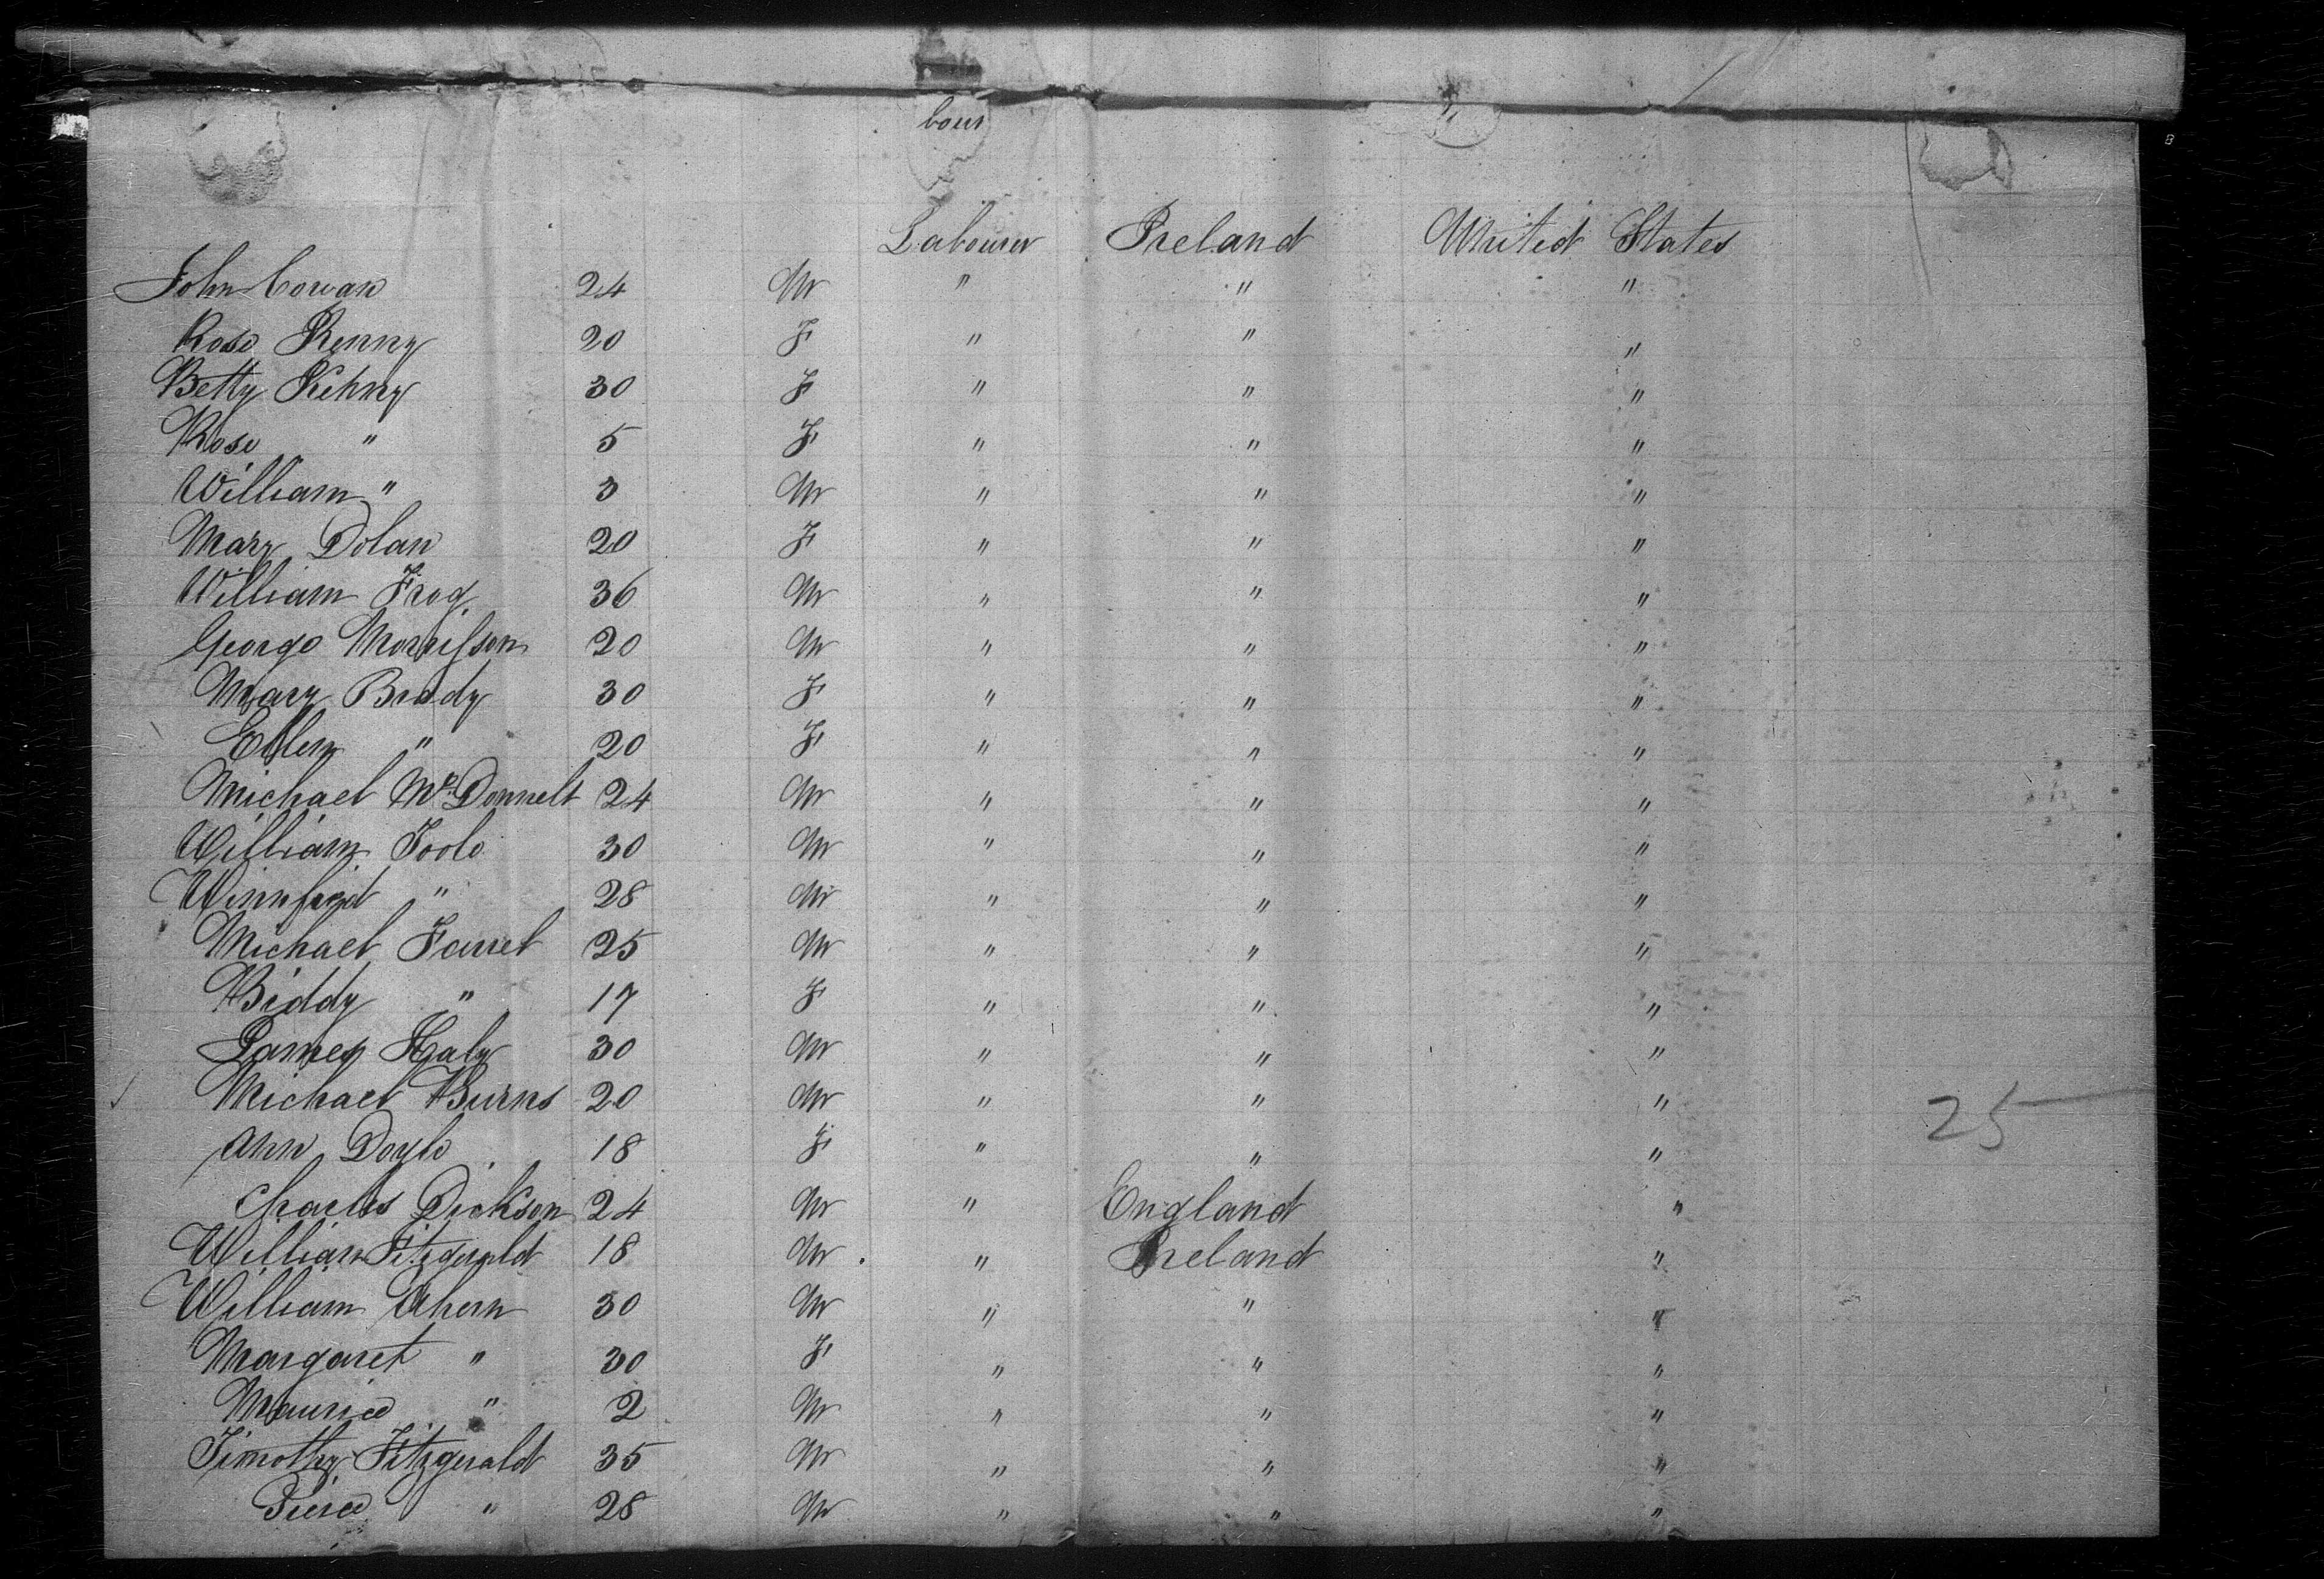 bour
Labourer Ireland United States
John Cowan 24 M " " "
Rose Kenny 20 F " " "
Betty Kenny 30 F " " "
Rose " 5 F " " "
William " 3 M " " "
Mary Dolan 20 F " " "
William Frog 36 M " " "
George Morrisson 20 M " " "
Mary Brady 30 F " " "
Ellen " 20 F " " "
Michael McDonnell 24 M " " "
William Toole 30 M " " "
Winnfrid " 28 M " " "
Michael Farrel 25 M " " "
Biddy " 17 F " " "
James Haly 30 M " " "
Michael Burns 20 M " " " 25
Ann Doyle 18 F " " "
Charles Dickson 24 M " England "
William Fitzgerald 18 M " Ireland "
William Ahern 30 M " " "
Margaret " 30 F " " "
Maurice " 2 M " " "
Timothy Fitzgerald 35 M " " "
Pierce " 28 M " " "